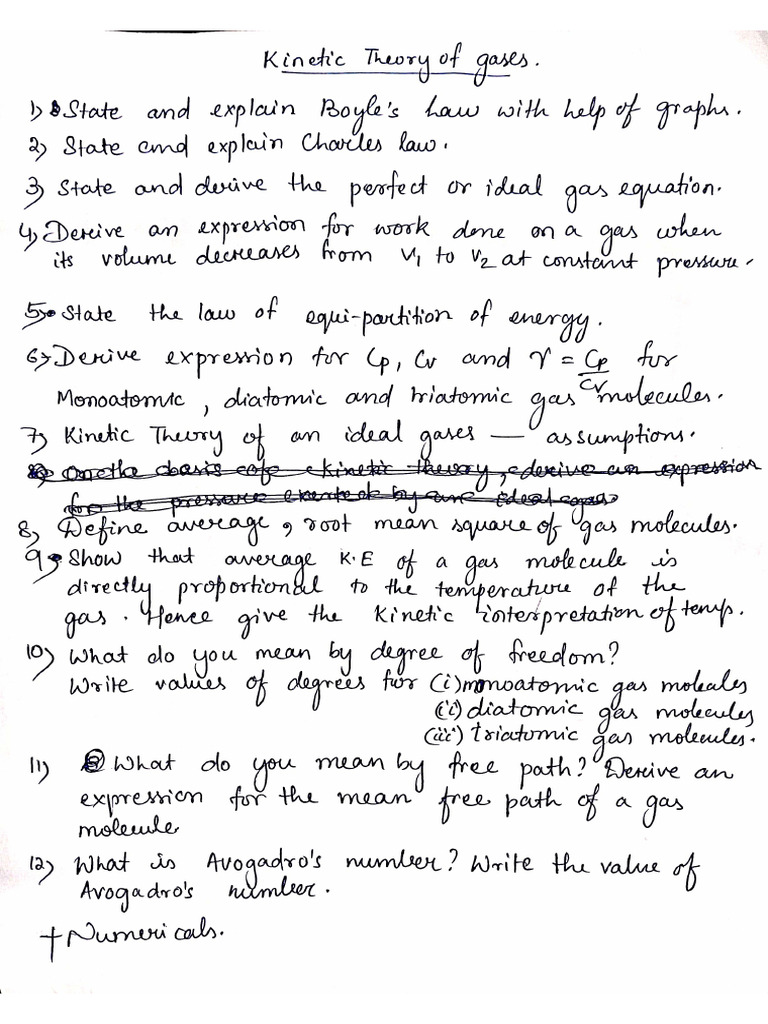 Kinetic Theory of gases.
1) State and explain Boyle's Law with help of graphs.
2) State and explain Charles law.
3) State and derive the perfect or ideal gas equation.
4) Derive an expression for work done on a gas when
its volume decreases from V₁ to V₂ at constant pressure.
5) State the law of equi-partition of energy.
6) Derive expression for Cp, Cv and γ = Cp/Cv for
Monoatomic, diatomic and triatomic gas molecules.
7) Kinetic Theory of an ideal gases — assumptions.
8) On the basis of kinetic theory, derive an expression
for the pressure exerted by an ideal gas
8) Define average, root mean square of gas molecules.
9) Show that average K.E of a gas molecule is
directly proportional to the temperature of the
gas. Hence give the Kinetic interpretation of temp.
10) What do you mean by degree of freedom?
Write values of degrees for (i) monoatomic gas moleales
(ii) diatomic gas molecules
(iii) triatomic gas molecules.
11) What do you mean by free path? Derive an
expression for the mean free path of a gas
molecule
12) What is Avogadro's number? Write the value of
Avogadro's number.
+ Numericals.